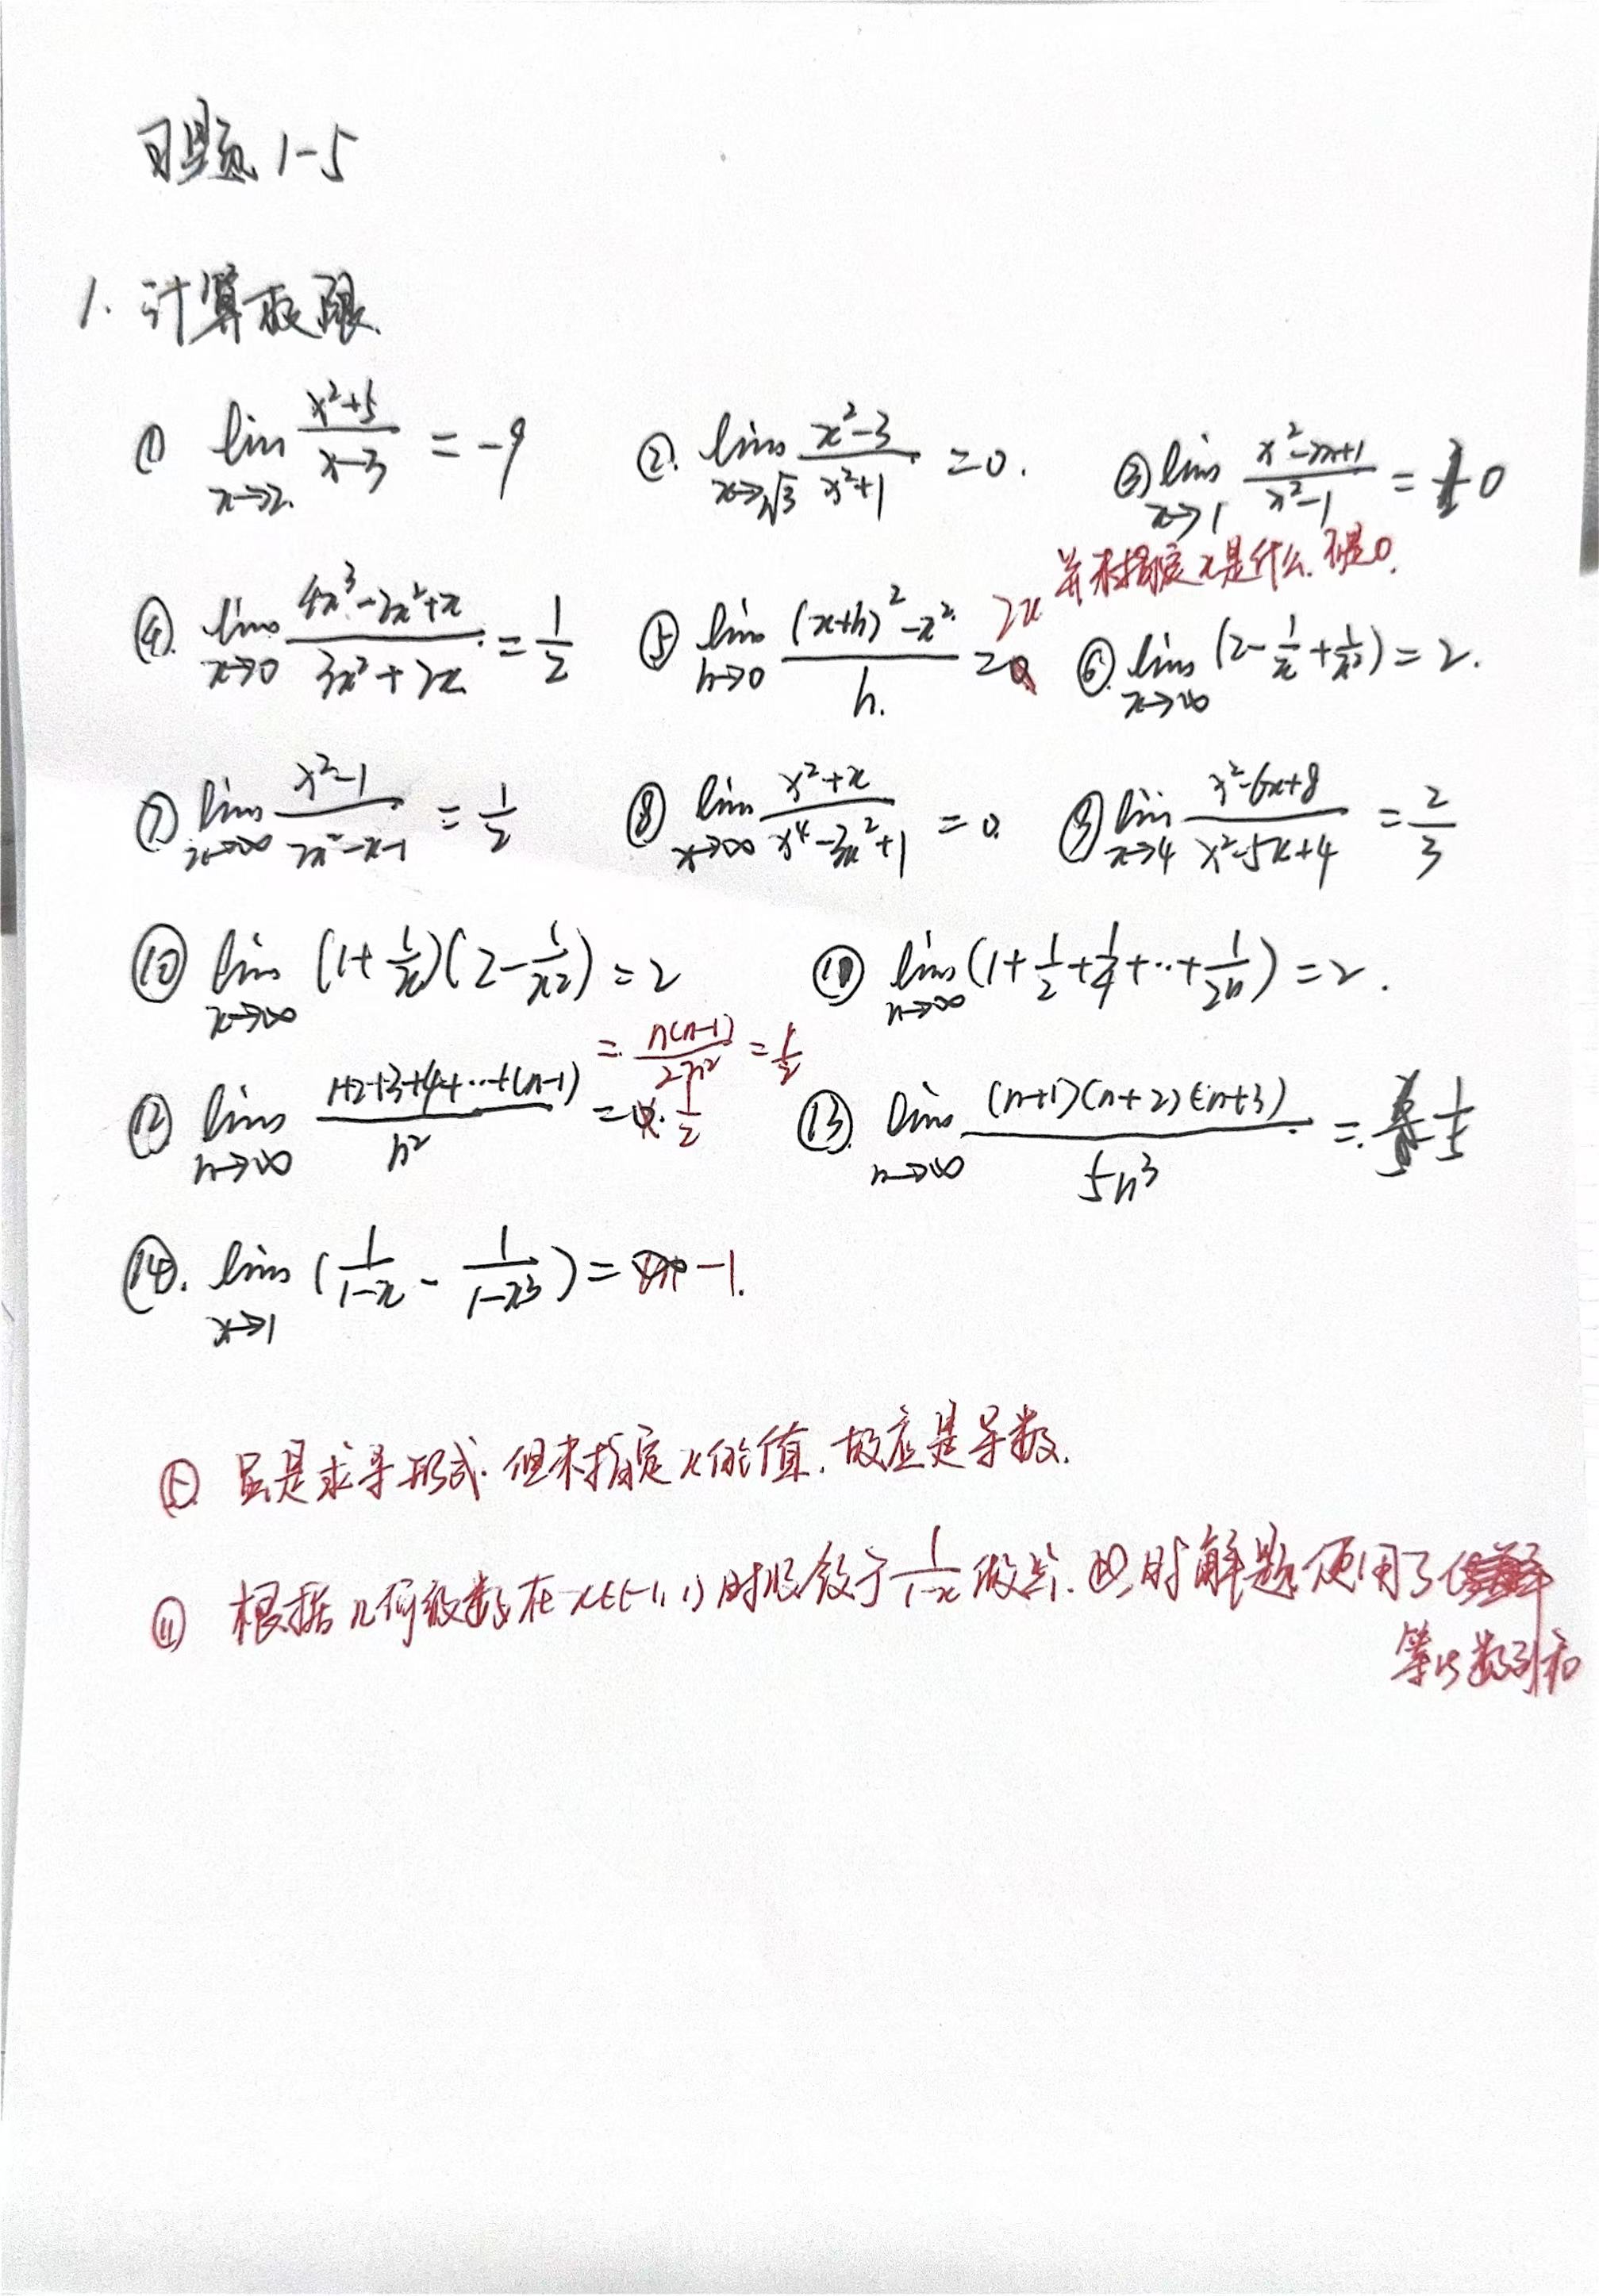 习题 1-5
1. 计算极限.
① lim x→2 (x²+5)/(x-3) = -9 ②. lim x→√3 (x²-3)/(x²+1) = 0. ③ lim x→1 (x²-2x+1)/(x²-1) = 0
并未指定x是什么.不是0.
④. lim x→0 (4x³-2x²+x)/(3x²+2x) = 1/2 ⑤ lim h→0 ((x+h)²-x²)/h = 2x ⑥. lim x→∞ (2-1/x+1/x²) = 2.
⑦ lim x→∞ (x²-1)/(2x²-x-1) = 1/2 ⑧ lim x→∞ (x²+x)/(x⁴-3x²+1) = 0. ⑨ lim x→4 (x²-6x+8)/(x²-5x+4) = 2/3
⑩ lim x→∞ (1+1/x)(2-1/x²) = 2 ⑪ lim n→∞ (1+1/2+1/4+…+1/2ⁿ) = 2.
= n(n-1)/2n² = 1/2
⑫ lim n→∞ (1+2+3+4+…+(n-1))/n² = 1/2 ⑬. lim n→∞ (n+1)(n+2)(n+3)/5n³ = 1/5
⑭. lim x→1 (1/(1-x) - 1/(1-x³)) = -1.
⑤ 虽是求导形式.但未指定x的值.故应是导数.
⑪ 根据几何级数在x∈(-1,1)时收敛于1/(1-x)做出.此时解题使用了
等比数列和